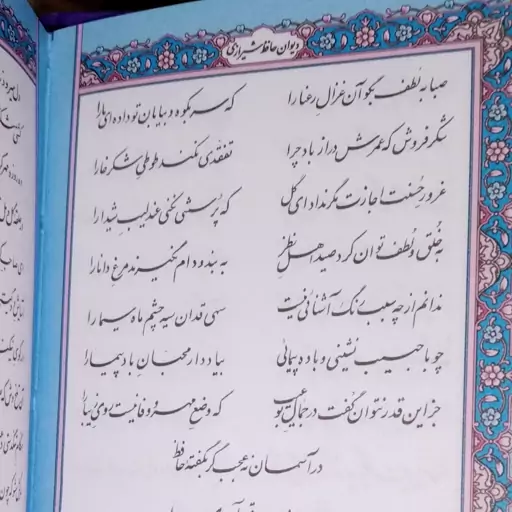 دیوان حافظ شیرازی
صبا به لطف بگو آن غزال رعنا را
که سر بکوه و بیابان تو داده‌ای ما را
شکرفروش که عمرش دراز باد چرا
تفقدی نکند طوطی شکرخا را
غرور حسنت اجازت مگر نداد ای گل
که پرسشی نکنی عندلیب شیدا را
به خلق و لطف توان کرد صید اهل نظر
به بند و دام نگیرند مرغ دانا را
ندانم از چه سبب رنگ آشنائی نیست
سهی قدان سیه چشم ماه سیما را
چو با حبیب نشینی و باده پیمائی
بیاد دار محبان باد پیما را
جز این قدر نتوان گفت در جمال تو عیب
که وضع مهر و وفا نیست روی زیبا را
در آسمان نه عجب گر بگفته حافظ